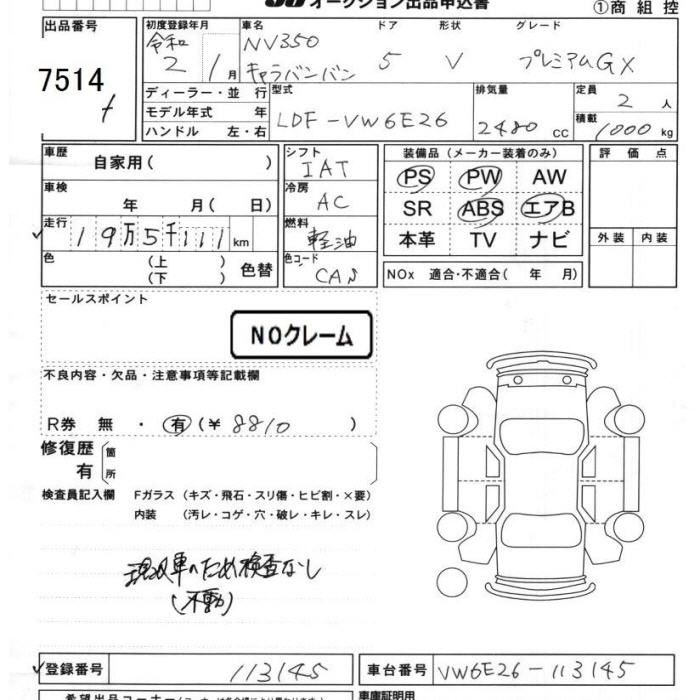 オークション出品申込書
①商 組 控
出品番号 初度登録年月 車名 ドア 形状 グレード
7514 令和 2年 1月 NV350 キャラバンバン 5 V プレミアムGX
ディーラー・並 行 型式 排気量 定員 2 人
モデル年式 年 LDF-VW6E26 2480 cc 積載
ハンドル 左・右 1000 kg
車歴 自家用( ) シフト IAT 装備品 (メーカー装着のみ) 評 価 点
車検 年 月( 日) 冷房 AC PS PW AW
走行 19万5千111 km 燃料 軽油 SR ABS エアB
本革 TV ナビ 外装 内装
色 (上) (下) 色替 色コード CAS NOx 適合・不適合( 年 月)
セールスポイント
NOクレーム
不良内容・欠品・注意事項等記載欄
R券 無 ・ 有 (¥ 8810 )
修復歴 箇
有 所
検査員記入欄 Fガラス (キズ・飛石・スリ傷・ヒビ割・×要)
内装 (汚レ・コゲ・穴・破レ・キレ・スレ)
現状車のため検査なし
(不動)
登録番号 113145 車台番号 VW6E26-113145
車庫証明用